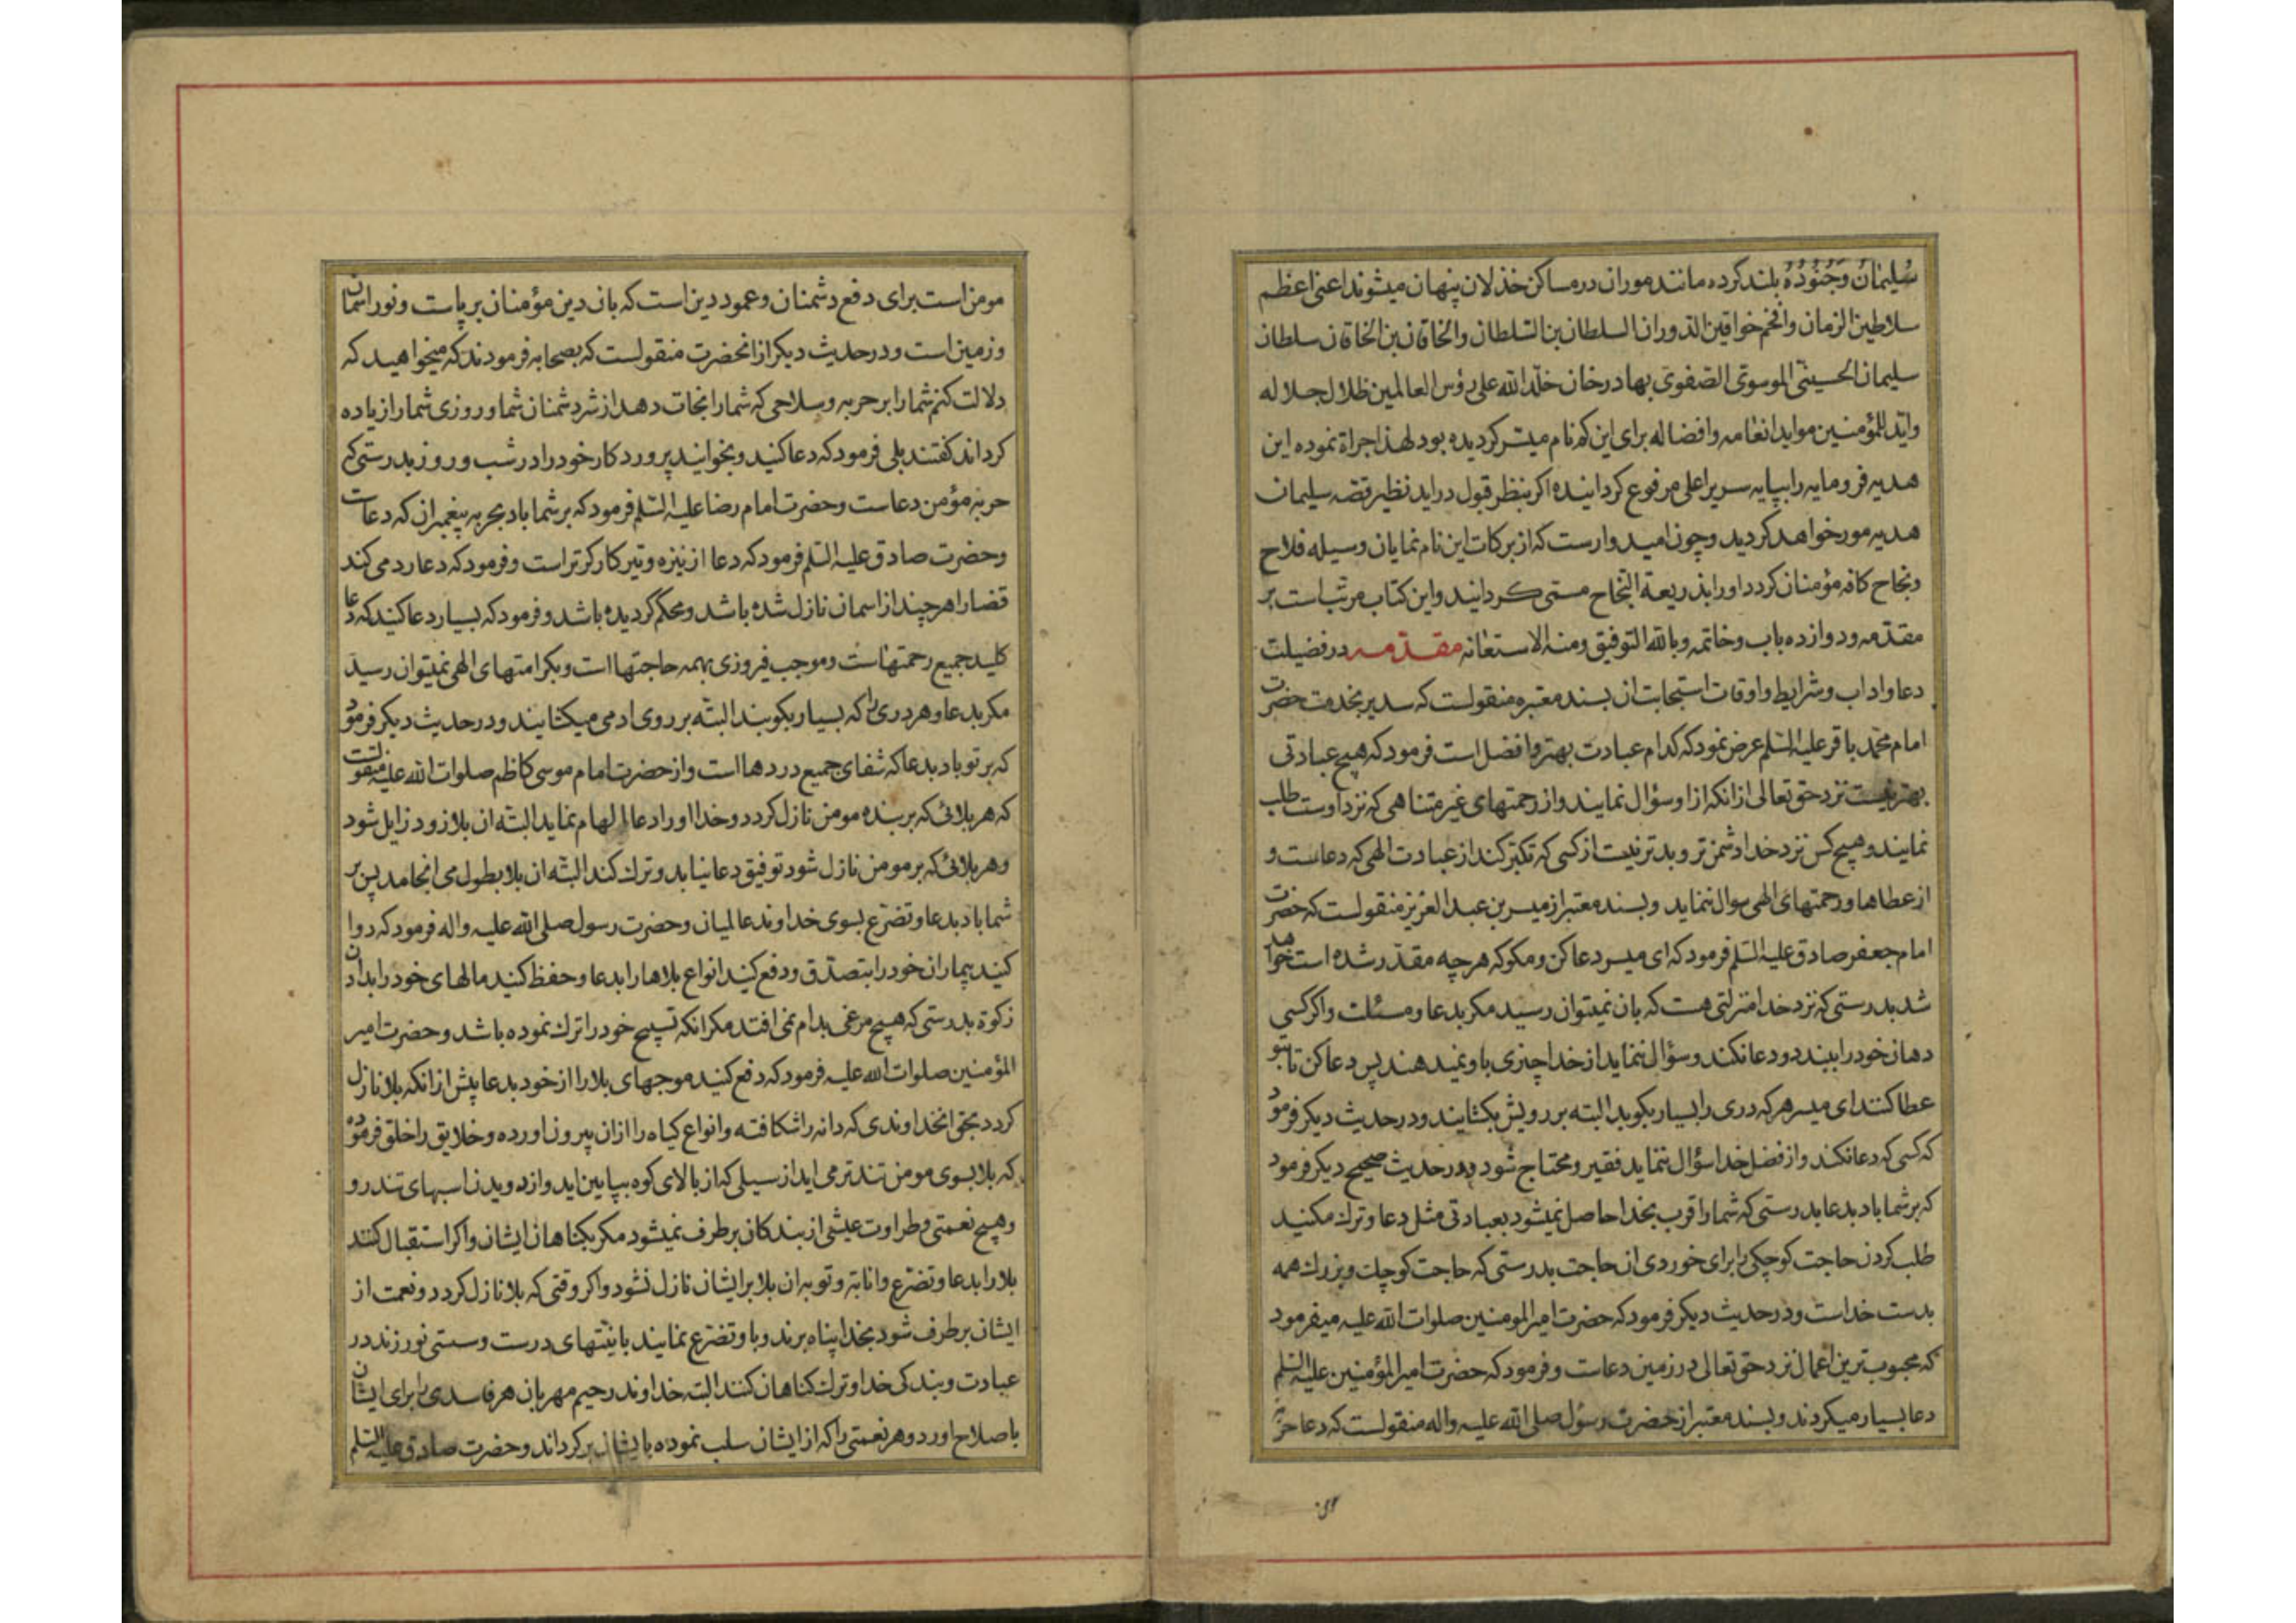 سُلیمانُ وَجُنُودُهُ بلند کرده مانند موران در مساکن خذلان پنهان میشوند اعنی اعظم
سلاطین الزمان وافخم خواقین الدوران السلطان بن السلطان والخاقان بن الخاقان سلطان
سلیمان الحسینی الموسوی الصفوی بهادرخان خلد الله علی رؤس العالمین ظلال جلاله
واید للمؤمنین مواید انعامه وافضاله برای این کم نام میسر کردیده بود لهذا جراة نموده این
هدیه فرومایه را بپایه سریر اعلی مرفوع کردانیده اکر بنظر قبول دراید نظیر قصه سلیمان
هدیه مور خواهد کردید وچون امیدوارست که از برکات این نام نمایان وسیله فلاح
ونجاح کافه مؤمنان کردد او را بذریعة النجاح مسمی کردانید واین کتاب مرتب است بر
مقدمه ودوازده باب وخاتمه وبالله التوفیق ومنه الاستعانه مقدمه در فضیلت
دعا واداب وشرایط واوقات استجابت ان بسند معتبره منقولست که سدیر بخدمت حضرت
امام محمد باقر علیه السلم عرض نمود که کدام عبادت بهتر وافضل است فرمود که هیچ عبادتی
بهتر نیست نزد حق تعالی از انکه ازا وسؤال نمایند واز رحمتهای غیر متناهی که نزد اوست طلب
نمایند وهیچ کس نزد خدا دشمن تر وبدتر نیست از کسی که تکبر کند از عبادت الهی که دعاست و
از عطاها ورحمتهای الهی سوال ننماید وبسند معتبر از میسر بن عبد العزیز منقولست که حضرت
امام جعفر صادق علیه السلم فرمود که ای میسر دعا کن ومکو که هرچه مقدر شده است خواهد
شد بدرستی که نزد خدا منزلتی هست که بان نمیتوان رسید مکر بدعا ومسئلت واکر کسی
دهان خود را ببندد ودعا نکند وسؤال ننماید از خدا چیزی باو نمیدهند پس دعا کن تا بتو
عطا کنند ای میسر هرکه دری را بسیار بکوبد البته بر رویش بکشایند ودر حدیث دیکر فرمود
که کسی که دعا نکند واز فضل خدا سؤال ننماید فقیر ومحتاج شود ودر حدیث صحیح دیکر فرمود
که بر شما باد بدعا بدرستی که شما را قرب بخدا حاصل نمیشود بعبادتی مثل دعا وترك مکنید
طلب کردن حاجت کوچکی را برای خوردی ان حاجت بدرستی که حاجت کوچك وبزرك همه
بدست خداست ودر حدیث دیکر فرمود که حضرت امیر المومنین صلوات الله علیه میفرمود
که محبوب ترین اعمال نزد حق تعالی در زمین دعاست وفرمود که حضرت امیر المؤمنین علیه السلم
دعا بسیار میکردند وبسند معتبر از حضرت رسول صلی الله علیه واله منقولست که دعا حربه
مومن است برای دفع دشمنان وعمود دین است که بان دین مؤمنان برپاست ونور اسمان
وزمین است ودر حدیث دیکر از انحضرت منقولست که بصحابه فرمودند که میخواهید که
دلالت کنم شما را بر حربه وسلاحی که شما را نجات دهد از شر دشمنان شما وروزی شما را زیاده
کرداند کفتند بلی فرمود که دعا کنید وبخوانید پروردکار خود را در شب وروز بدرستی که
حربه مؤمن دعاست وحضرت امام رضا علیه السلم فرمود که بر شما باد بحربه پیغمبران که دعاست
وحضرت صادق علیه السلم فرمود که دعا از نیزه وتیر کارکرتر است وفرمود که دعا رد می کند
قضا را هرچند از اسمان نازل شده باشد ومحکم کردیده باشد وفرمود که بسیار دعا کنید که دعا
کلید جمیع رحمتهاست وموجب فیروزی بهمه حاجتهااست وبکرامتهای الهی نمیتوان رسید
مکر بدعا وهر دری را که بسیار بکوبند البته بر روی ادمی میکشایند ودر حدیث دیکر فرمود
که بر تو باد بدعا که شفای جمیع دردهااست واز حضرت امام موسی کاظم صلوات الله علیه منقولست
که هر بلائی که بر بنده مومن نازل کردد وخدا او را دعا الهام نماید البته ان بلا زود زایل شود
وهر بلائی که بر مومن نازل شود توفیق دعا نیابد وترك کند البته ان بلا بطول می انجامد پس بر
شما باد بدعا وتضرع بسوی خداوند عالمیان وحضرت رسول صلی الله علیه واله فرمود که دوا
کنید بیماران خود را بتصدق ودفع کنید انواع بلاها را بدعا وحفظ کنید مالهای خود را بدادن
زکوة بدرستی که هیچ مرغی بدام نمی افتد مکر انکه تسبیح خود را ترك نموده باشد وحضرت امیر
المؤمنین صلوات الله علیه فرمود که دفع کنید موجهای بلا را از خود بدعا پیش از انکه بلا نازل
کردد بحق انخداوندی که دانه را شکافته وانواع کیاه را ازان بیرون اورده وخلایق را خلق فرموده
که بلا بسوی مومن تندتر می اید از سیلی که از بالای کوه بپایین اید واز دویدن اسبهای تندرو
وهیچ نعمتی وطراوت عیشی از بندکان برطرف نمیشود مکر بکناهان ایشان واکر استقبال کنند
بلا را بدعا وتضرع وانابة وتوبه ان بلا بر ایشان نازل نشود واکر وقتی که بلا نازل کردد ونعمت از
ایشان برطرف شود بخدا پناه برند وباو تضرع نمایند با نیتهای درست وسستی نورزند در
عبادت وبندکی خدا وترك کناهان کنند البته خداوند رحیم مهربان هر فاسدی را برای ایشان
باصلاح اورد وهر نعمتی را که از ایشان سلب نموده بایشان برکرداند وحضرت صادق علیه السلم